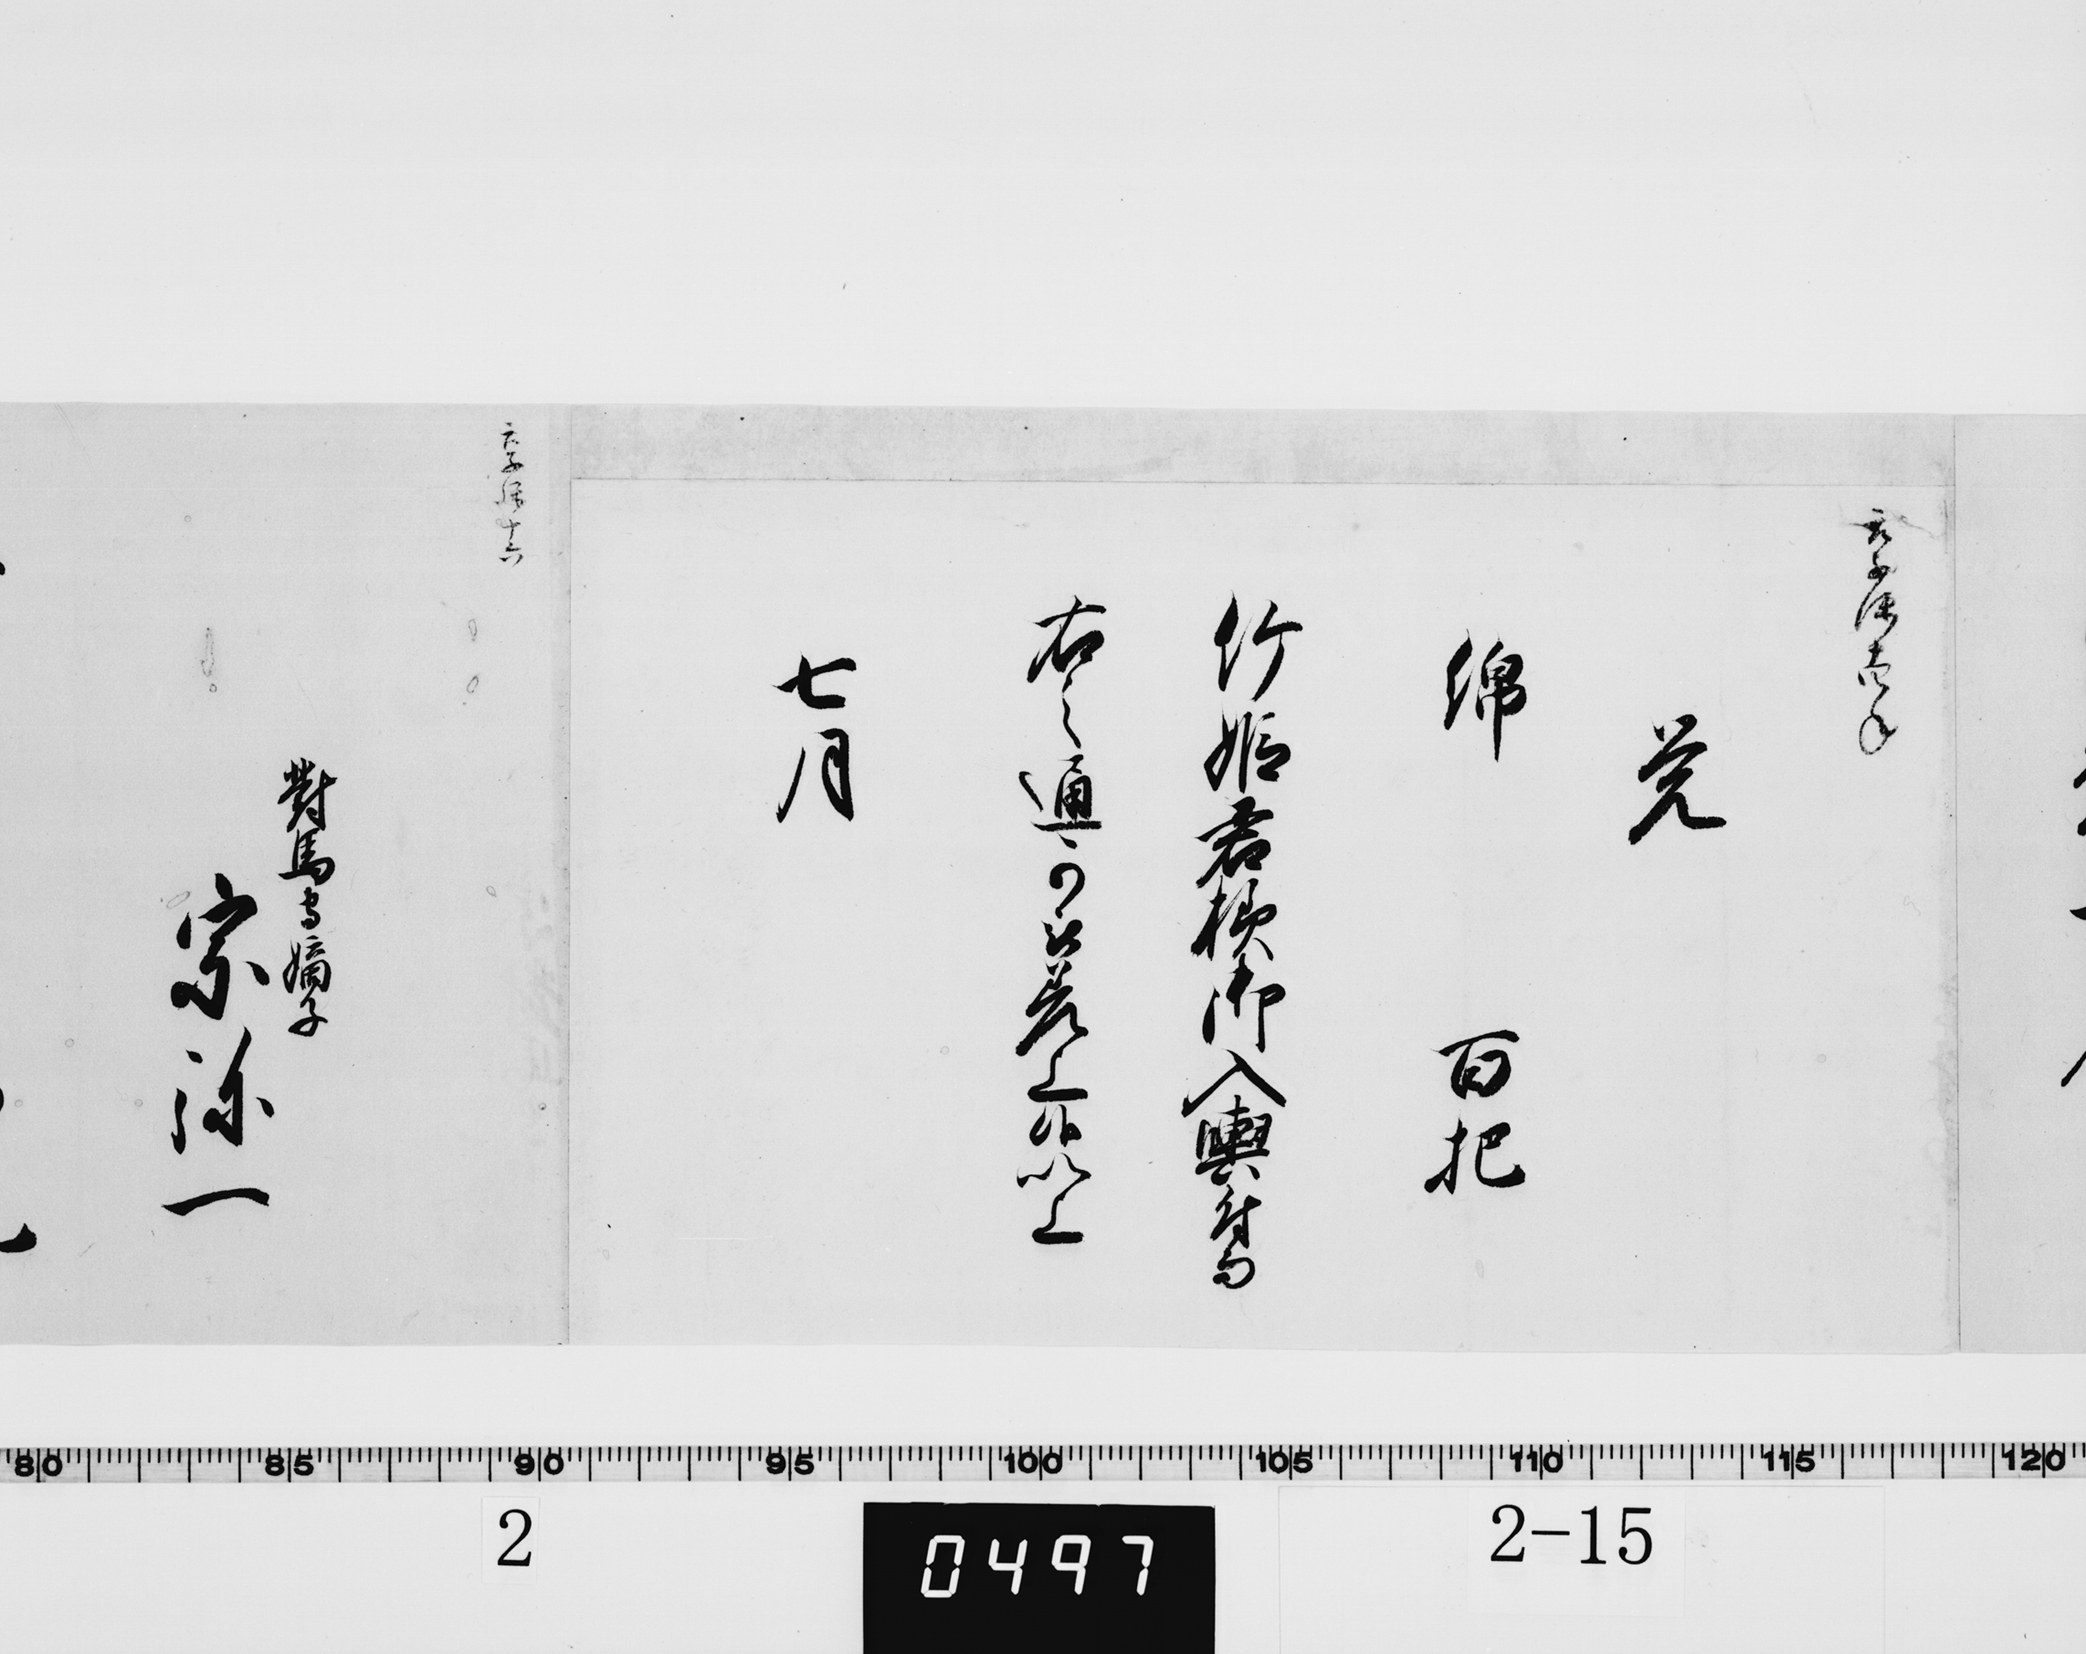 享保十四年
覚
綿　百把
竹姫君様御入輿付而
右之通可被差上候以上
七月
享保十六
對馬守嫡子
宗弥一
80 85 90 95 100 105 110 115 120
2 0497 2-15